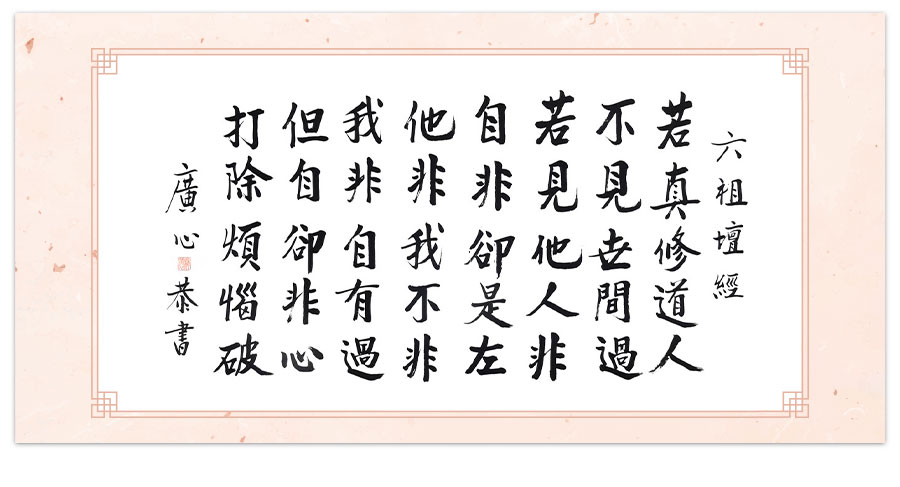 六祖壇經
若真修道人
不見世間過
若見他人非
自非卻是左
他非我不非
我非自有過
但自卻非心
打除煩惱破
廣心恭書